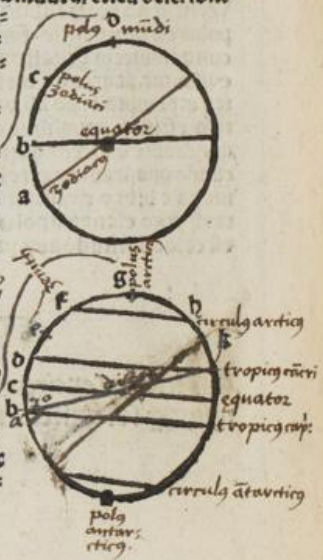 D
polꝰ mūdi
c polus
zodiaci
equator
b
zodiacꝰ
a
polus
arcticꝰ
g
f h
circulꝰ arcticꝰ
e k
d tropicꝰ cācri
c equator
b
a tropicꝰ capᷣ:
circulꝰ ātarcticꝰ
polꝰ
antar-
cticꝰ.